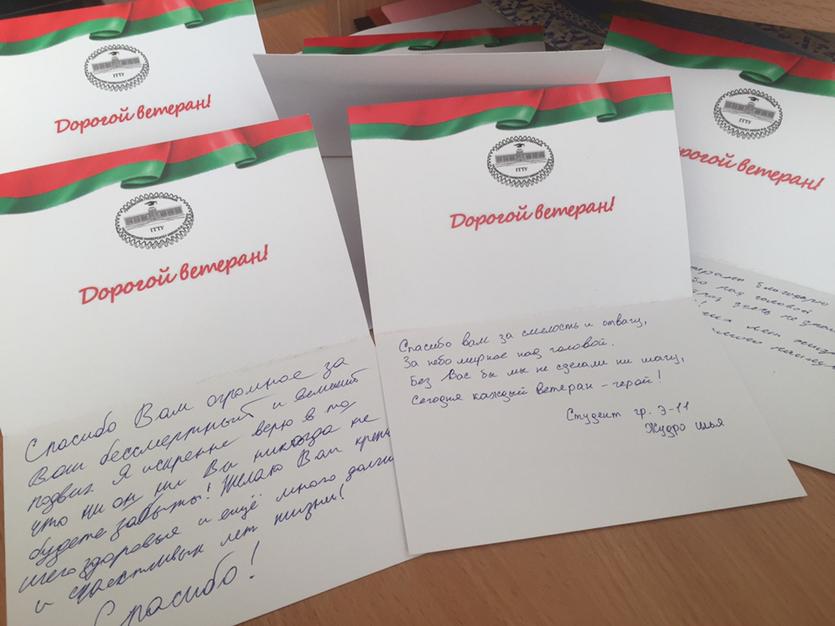 ГГТУ
Дорогой ветеран!
ГГТУ
Дорогой ветеран!
Спасибо Вам огромное за
Ваш бессмертный и великий
подвиг. Я искренне верю в то
что ни он ни Вы никогда не
будете забыты! Желаю Вам крепч
шего здоровья и ещё много долги
и счастливых лет жизни!
Спасибо!
ГГТУ
Дорогой ветеран!
Спасибо вам за смелость и отвагу,
За небо мирное над головой.
Без Вас бы мы не сделали ни шагу,
Сегодня каждый ветеран - герой!
Студент гр. Э-11
Жудро Илья
ГГТУ
орогой ветеран!
над головой
лет
много